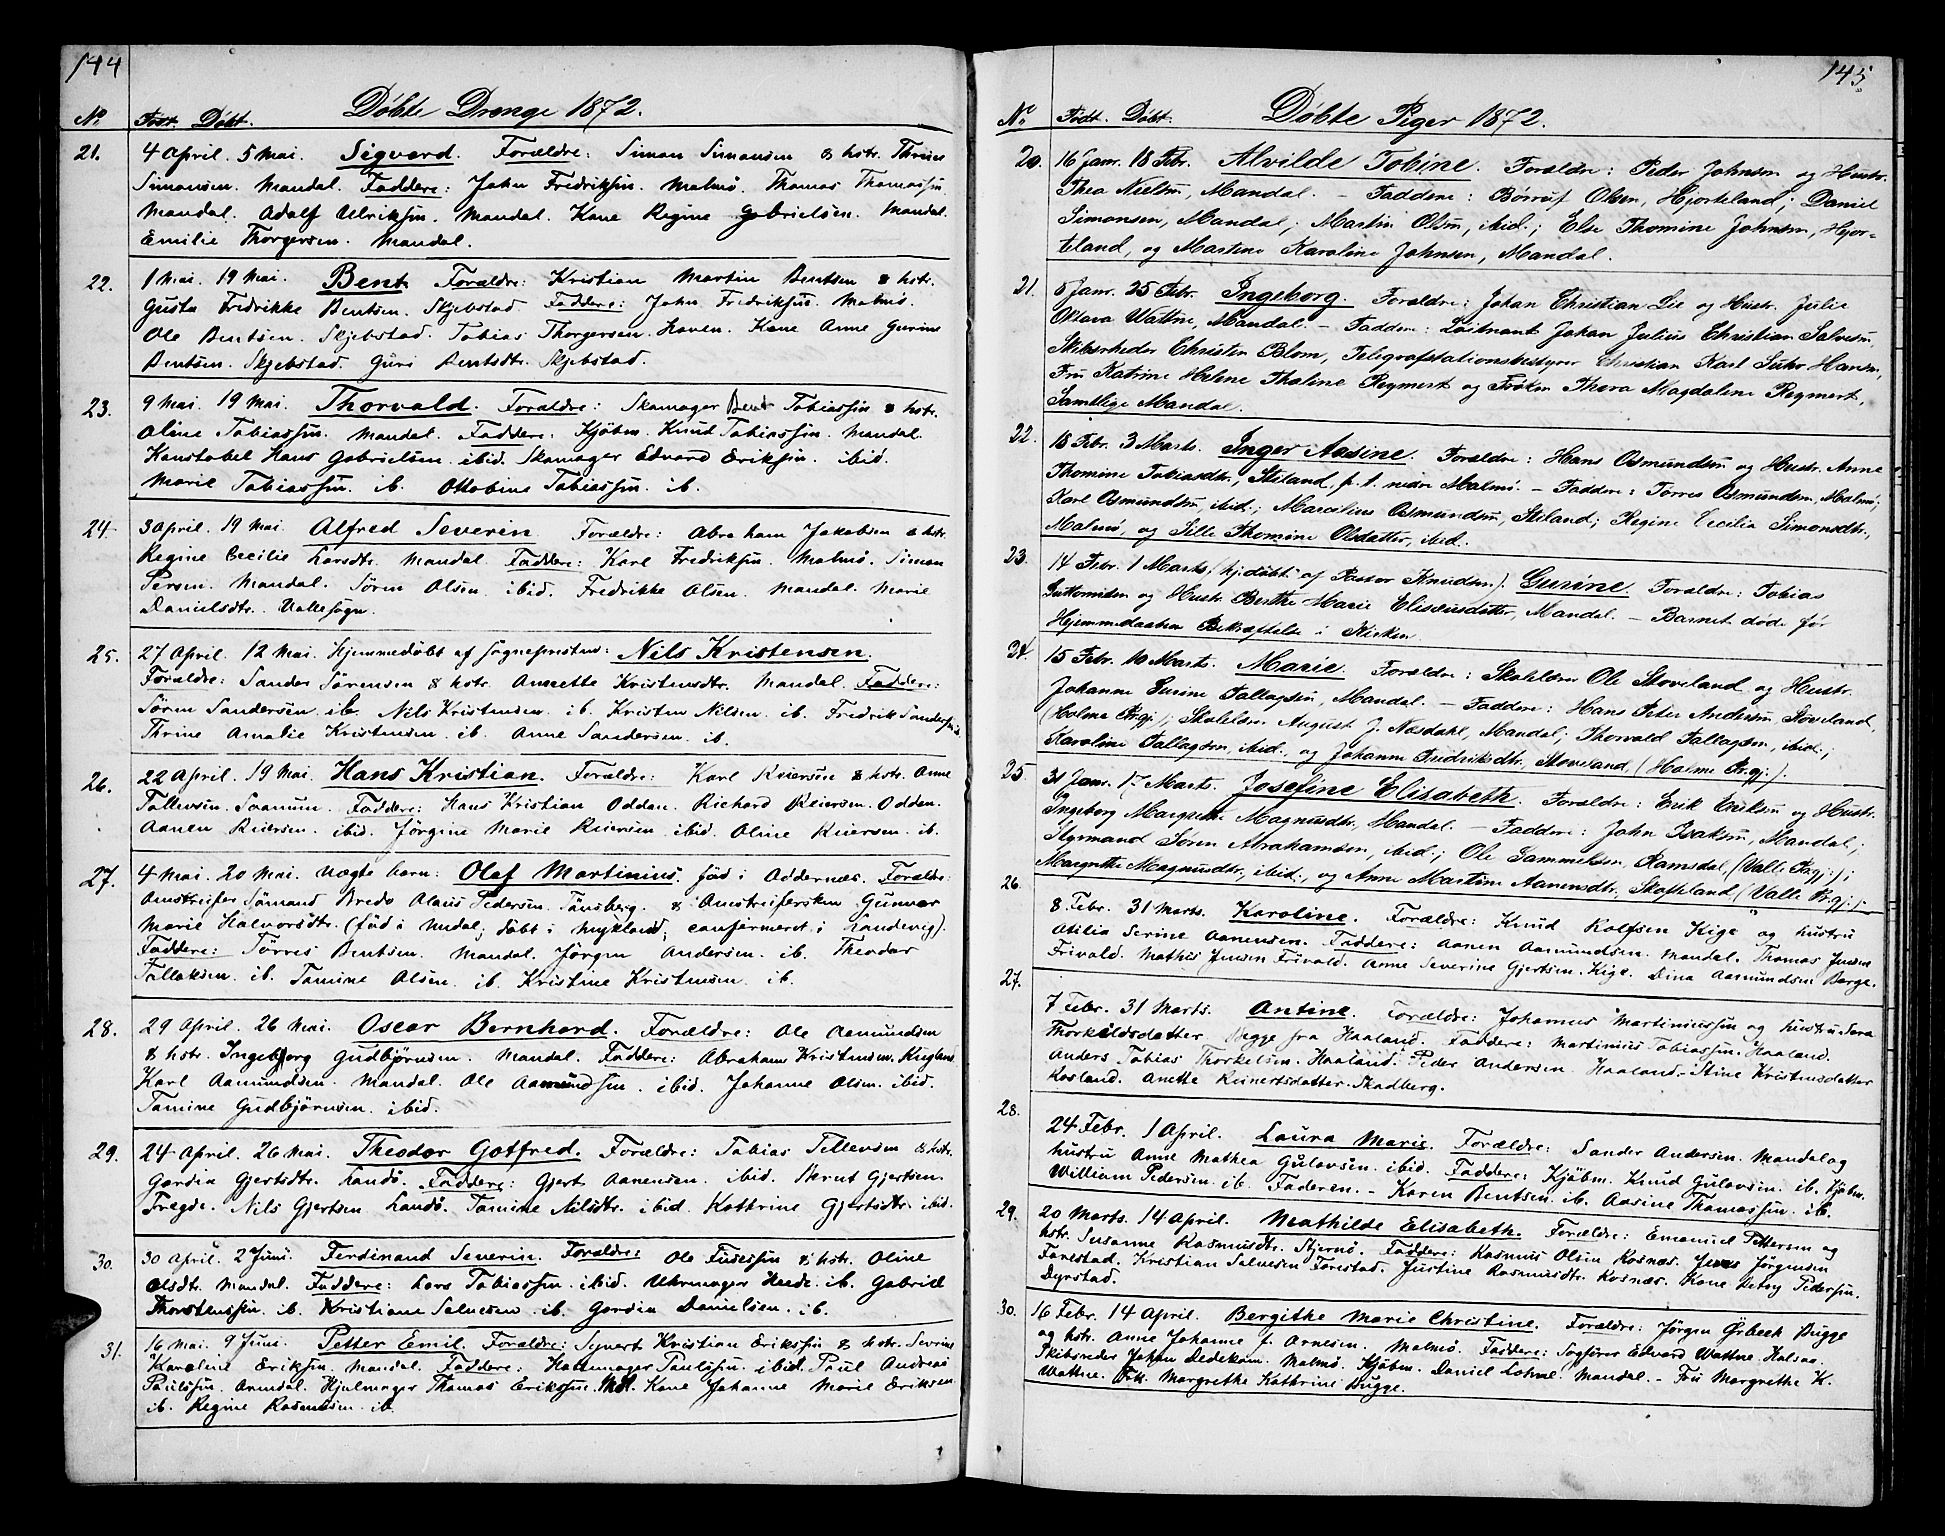 144
Døbte Drenge 1872.
No Født. Døbt.
21. 4 April. 5 Mai. Sigvard. Forældre: Simon Simonsen & hstr. Thrine
Simonsen. Mandal. Faddere: John Fredriksen. Malmø. Thomas Thomassen
Mandal. Adolf Ulriksen. Mandal. Kone Regine Gabrielsen. Mandal.
Emilie Thorgersen. Mandal.
22. 1 Mai. 19 Mai. Bent. Forældre: Kristian Martin Bentsen & hstr.
Gusta Fredrikke Bentsen. Skjebstad. Faddere: John Fredriksen. Malmø.
Ole Bentsen. Skjebstad. Tobias Thorgersen. Kone Anne Gurine
Bentsen. Skjebstad. Guri Bentsdtr. Skjebstad.
23. 9 Mai. 19 Mai. Thorvald. Forældre: Skomager Bent Tobiassen & hstr.
Oline Tobiassen. Mandal. Faddere: Kjøbm. Knud Tobiassen. Mandal.
Konstabel Hans Gabrielsen. ibid. Skomager Edvard Eriksen. ibid.
Marie Tobiassen. ib. Ottobine Tobiassen. ib.
24. 3 April. 19 Mai. Alfred Severin Forældre: Abraham Jakobsen & hstr.
Regine Cecilie Larsdtr. Mandal. Faddere: Karl Fredriksen. Malmø. Simon
Persen. Mandal. Søren Olsen. ibid. Fredrikke Olsen. Mandal. Marie
Danielsdtr. Vallesogn.
25. 27 April. 12 Mai. Hjemmedøbt af Sognepresten: Nils Kristensen.
Forældre: Sander Sørensen & hstr. Annette Kristensdtr. Mandal. Faddere:
Søren Sandersen. ib. Nils Kristensen. ib. Kristen Nilsen. ib. Fredrik Sandersen ib
Thrine Amalie Kristensen. ib. Anne Sandersen. ib.
26. 22 April. 19 Mai. Hans Kristian. Forældre: Karl Reiersen & hstr. Anne
Tollevsen. Sannum. Faddere: Hans Kristian Odden. Richard Reiersen. Odden.
Aanen Reiersen. ibid. Jørgine Marie Reiersen. ibid. Oline Reiersen. ib.
27. 4 Mai. 20 Mai. Uægte barn: Olaf Martinius. født i Oddernæs. Forældre:
Omstreifer Sømand Bredo Olaus Pedersen. Tønsberg. & Omstreifersken Gunner
Marie Halvorsdtr. (fød i Undal; døbt i Mykland; confirmeret i Landevig).
Faddere: Tørres Bentsen. Mandal. Jørgen Andersen. ib. Theodor
Tollaksen. ib. Tomine Olsen. ib. Kristine Kristensen. ib.
28. 29 April. 26 Mai. Oscar Bernhard. Forældre: Ole Aamundsen
& hstr. Ingeborg Gudbjørnsen. Mandal. Faddere: Abraham Kristensen.
Karl Aamundsen. Mandal. Ole Aamundsen. ibid. Johanne Olsen. ibid.
Tomine Gudbjørnsen. ibid.
29. 24 April. 26 Mai. Theodor Gotfred. Forældre: Tobias Tellevsen & hstr.
Gordia Gjertsdtr. Landø. Faddere: Gjert Aanensen. ibid. Gjertsen.
Fregde. Nils Gjertsen Landø. Tomine Nilsdtr. ibid. Kathrine Gjertsdtr. ibid.
30. 30 April. 2 Juni. Ferdinand Severin. Forældre: Ole & hstr. Oline
Olsdtr. Mandal. Faddere: Lars Tobiassen. ibid. Uhrmager Heede. ib. Gabriel
Thorstensen. ib. Kristiane Salvesen. ib. Gordia Danielsen. ib.
31. 16 Mai. 9 Juni. Petter Emil. Forældre: Syvert Kristian Eriksen & hstr. Severine
Karoline Eriksen. Mandal. Faddere: Paulsen. ibid. Paul Andreas
Paulsen. Arendal. Hjulmager Thomas Eriksen. Mdl. Kone Johanne Marie Eriksen
ib. Regine Rasmussen. ib.
145
Døbte Piger 1872.
No Født. Døbt.
20. 16 Janr. 18 Febr. Alvilde Tobine. Forældre: Peder Johnsen og Hustr.
Thea Nielsen, Mandal. – Faddere: Børruf Olsen, Hjorteland; Daniel
Simonsen, Mandal; Martin Olsen, ibid.; Else Thomine Johnsen, Hjor-
teland, og Martine Karoline Johnsen, Mandal.
21. 6 Janr. 25 Febr. Ingeborg. Forældre: Johan Christian Lie og Hustr. Julie
Oktava Wattne, Mandal. – Faddere: Løitnant Johan Julius Christian Salvesen,
Skibsrheder Christen Blom, Telegrafstationsbestyrer Christian Karl Suhr Hansen,
Fru Katrine Helene Thaline Reymert og Frøken Thora Magdalene Reymert,
Samtlige Mandal.
22. 18 Febr. 3 Marts. Inger Aasine. Forældre: Hans Osmundsen og Hustr. Anne
Thomine Tobiasdtr., Stiland, p. t. nedre Malmø. – Faddere: Tørres Osmundsen, Malmø;
Karl Osmundsen, ibid.; Marcilius Osmundsen, Stiland; Regine Cecilia Simonsdtr.,
Malmø, og Sille Thomine Olsdatter, ibid.
23. 14 Febr. 1 Marts, (hj.døbt af Pastor Knudsen). Gurine. Forældre: Tobias
Guttormsen og Hustr. Berthe Marie Elisæusdatter, Mandal. – Barnet døde før
Hjemmedaabens Bekræftelse i Kirken.
24. 15 Febr. 10 Marts. Marie. Forældre: Skolelærer Ole Stoveland og Hustr.
Johanne Gurine Fallagsen, Mandal. – Faddere: Hans Peter Andersen, Stoveland,
(Holme Prgj.); Skolelærer August J. Næsdahl, Mandal; Thorvald Fallagsen, ibid.;
Karoline Fallagsen, ibid., og Johanne Fredriksdtr., Stoveland, (Holme Prgj.).
25. 31 Janr. 17 Marts. Josefine Elisabeth. Forældre: Erik Eriksen og Hustr.
Ingeborg Margrethe Magnusdtr., Mandal. – Faddere: John Isaksen, Mandal;
Styrmand Søren Abrahamsen, ibid.; Ole Gammelsen, Ramsdal, (Valle Prgj.);
Margrethe Magnusdtr., ibid., og Anne Martine Aanensdtr., Skofteland, (Valle Prgj.).
26. 8 Febr. 31 Marts. Karoline. Forældre: Knud Rolfsen Kige og hustru
Otilia Serine Aanensen. Faddere: Aanen Aamundsen. Mandal. Thomas Jensen
Frivold. Mathis Jensen Frivold. Anne Severine Gjertsen. Kige. Dina Aamundsen Berge.
27. 7 Febr. 31 Marts. Antine. Forældre: Johannes Martiniussen og hustru Sara
Thorkildsdatter begge fra Haaland. Faddere: Martinius Tobiassen. Haaland.
Anders Tobias Thorkelsen. Haaland. Peder Andersen Haaland. – Stine Kristensdatter
Kosland. Anette Reinertsdatter. Skadberg.
28. 24 Febr. 1 April. Laura Marie. Forældre: Sander Andersen. Mandal og
hustru Anne Mathea Gulovsen. ibid. Faddere: Kjøbm. Knud Gulovsen. ib. Kjøbm.
William Pedersen. ib. Faderen. – Karen Bentsen. ib. Aasine Thomassen. ib.
29. 20 Marts. 14 April. Mathilde Elisabeth. Forældre: Emanuel Pettersen og
hstr. Susanne Rasmusdtr. Stjernø. Faddere: Rasmus Olsen Rosnæs. Jens Jørgensen
Tånestad. Kristian Salvesen Tånestad. Justine Rasmusdtr. Rosnæs. Kone Pedersen.
Dyrstad.
30. 16 Febr. 14 April. Bergithe Marie Christine. Forældre: Jørgen Ørbeck Bugge
og hstr. Anne Johanne f. Arnesen. Malmø. Faddere: Sagfører Edvard Wattne. Halsaa.
Skibsreder Johan Dedekam. Malmø. Kjøbm. Daniel Lohne. Mandal. – Fru Margrethe K.
Wattne. Frk. Margrethe Kathrine Bugge.